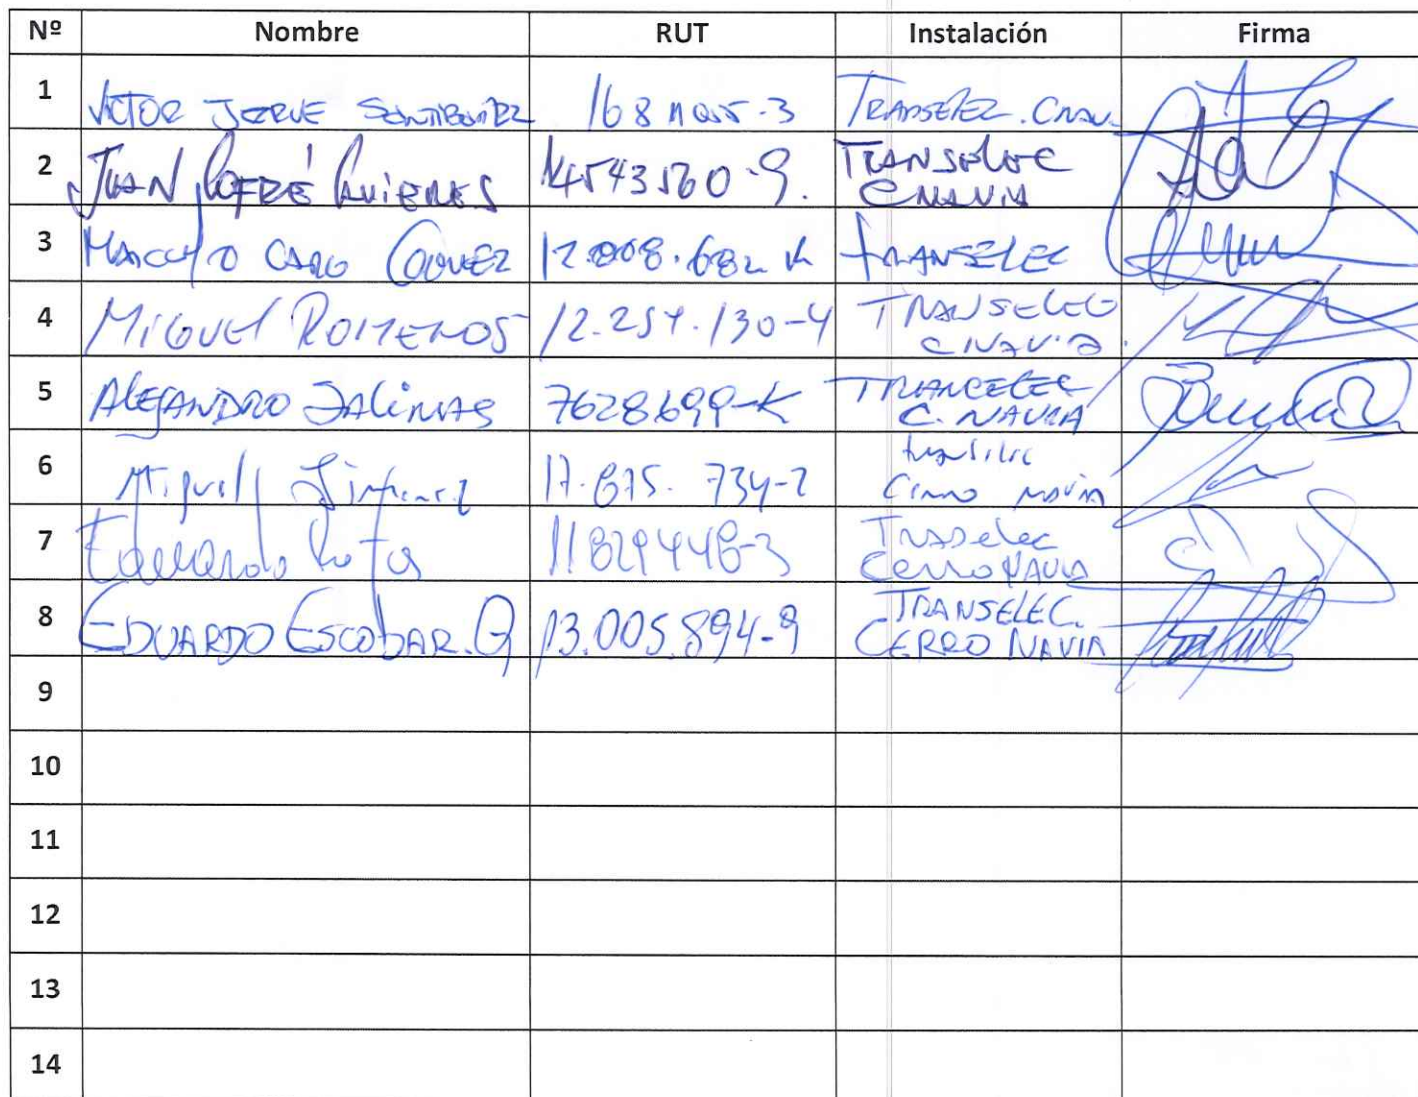 Nº Nombre RUT Instalación Firma
1 VICTOR JERVE
2 JUAN COFRÉ 14543560-9. TRANSELEC
CNAVIA
3 CARO GOMEZ 12.008.682 K TRANSELEC
4 MIGUEL ROMEROS 12.254.130-4 TRANSELEC
CNAVIA.
5 ALEJANDRO SALINAS 7628699-K TRANCELEC
C. NAVIA
6 Miguel Jimenez 17.675.734-2
Cerro navia
7 Eduardo Rojas 11829448-3 Traselec
Cerro NAVIA
8 EDUARDO ESCOBAR. G 13.005.894-9 TRANSELEC.
CERRO NAVIA
9
10
11
12
13
14